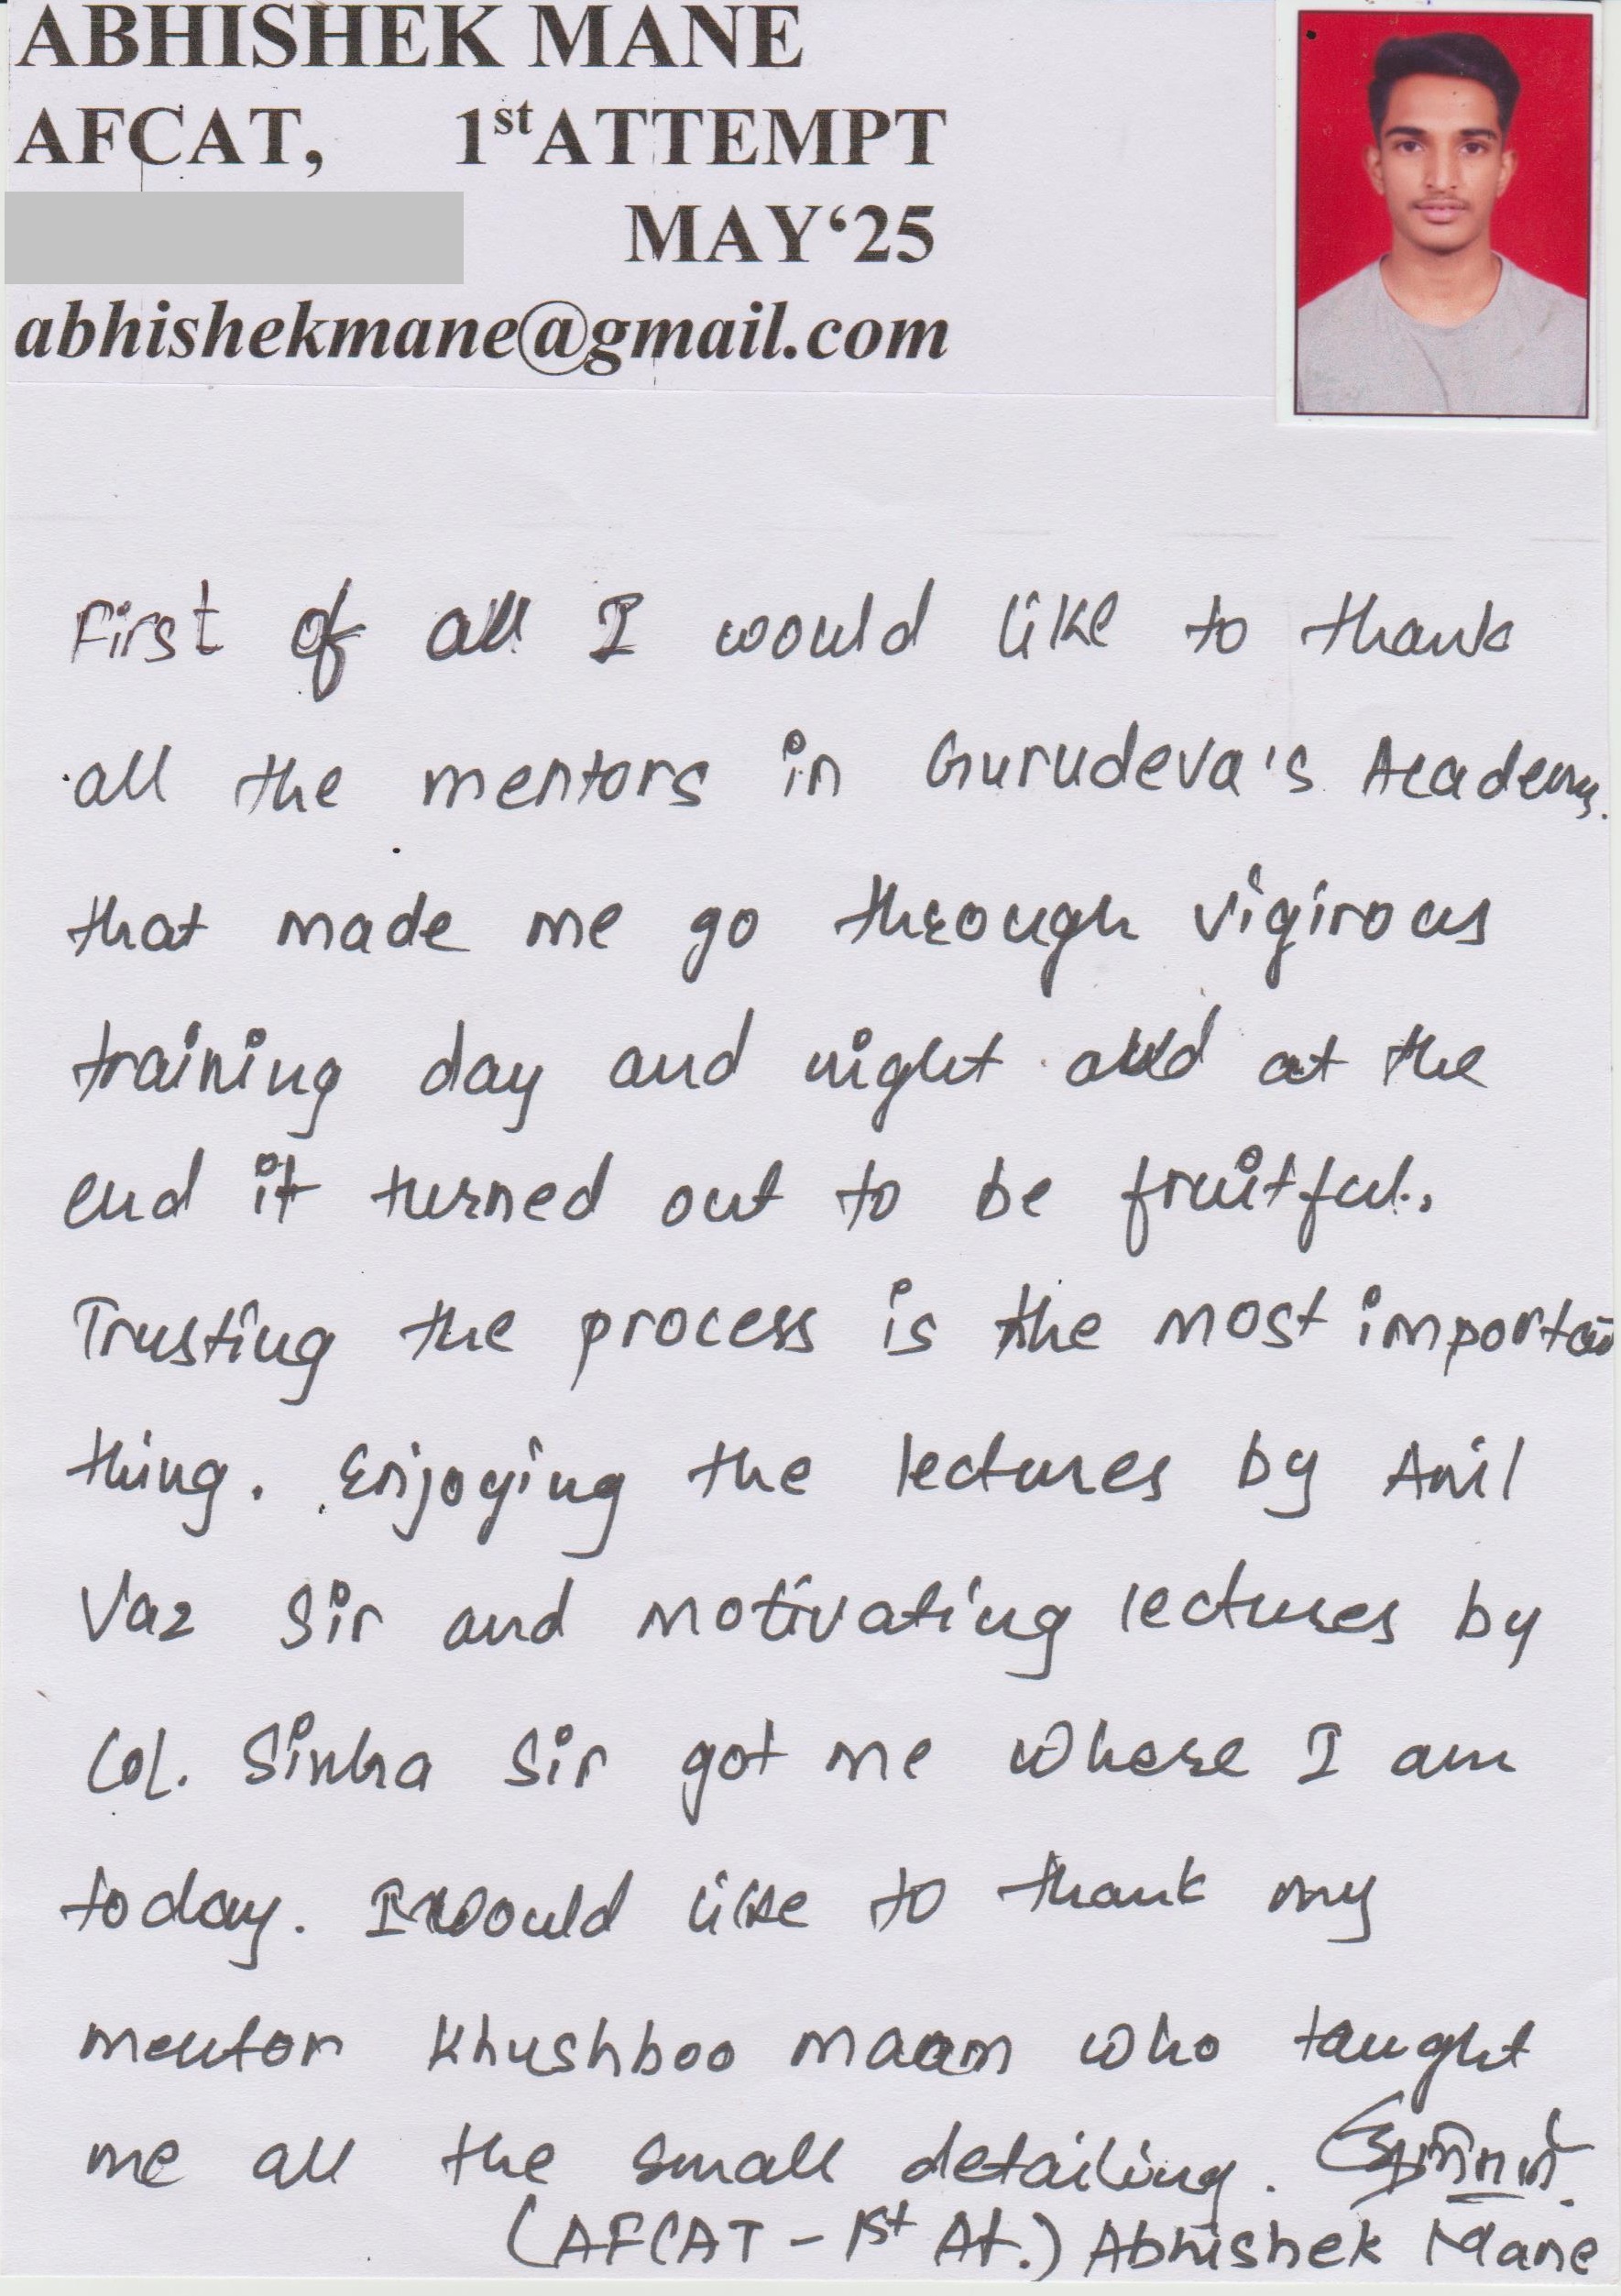 ABHISHEK MANE
AFCAT, 1st ATTEMPT
MAY‘25
abhishekmane@gmail.com
First of all I would like to thank
all the mentors in Gurudeva's Academy.
that made me go through vigirous
training day and night and at the
end it turned out to be fruitful.
Trusting the process is the most important
thing. Enjoying the lectures by Anil
Vaz Sir and motivating lectures by
Col. Sinha Sir got me where I am
today. I would like to thank my
mentor Khushboo maam who taught
me all the small detailing.
(AFCAT - 1st At.) Abhishek Mane